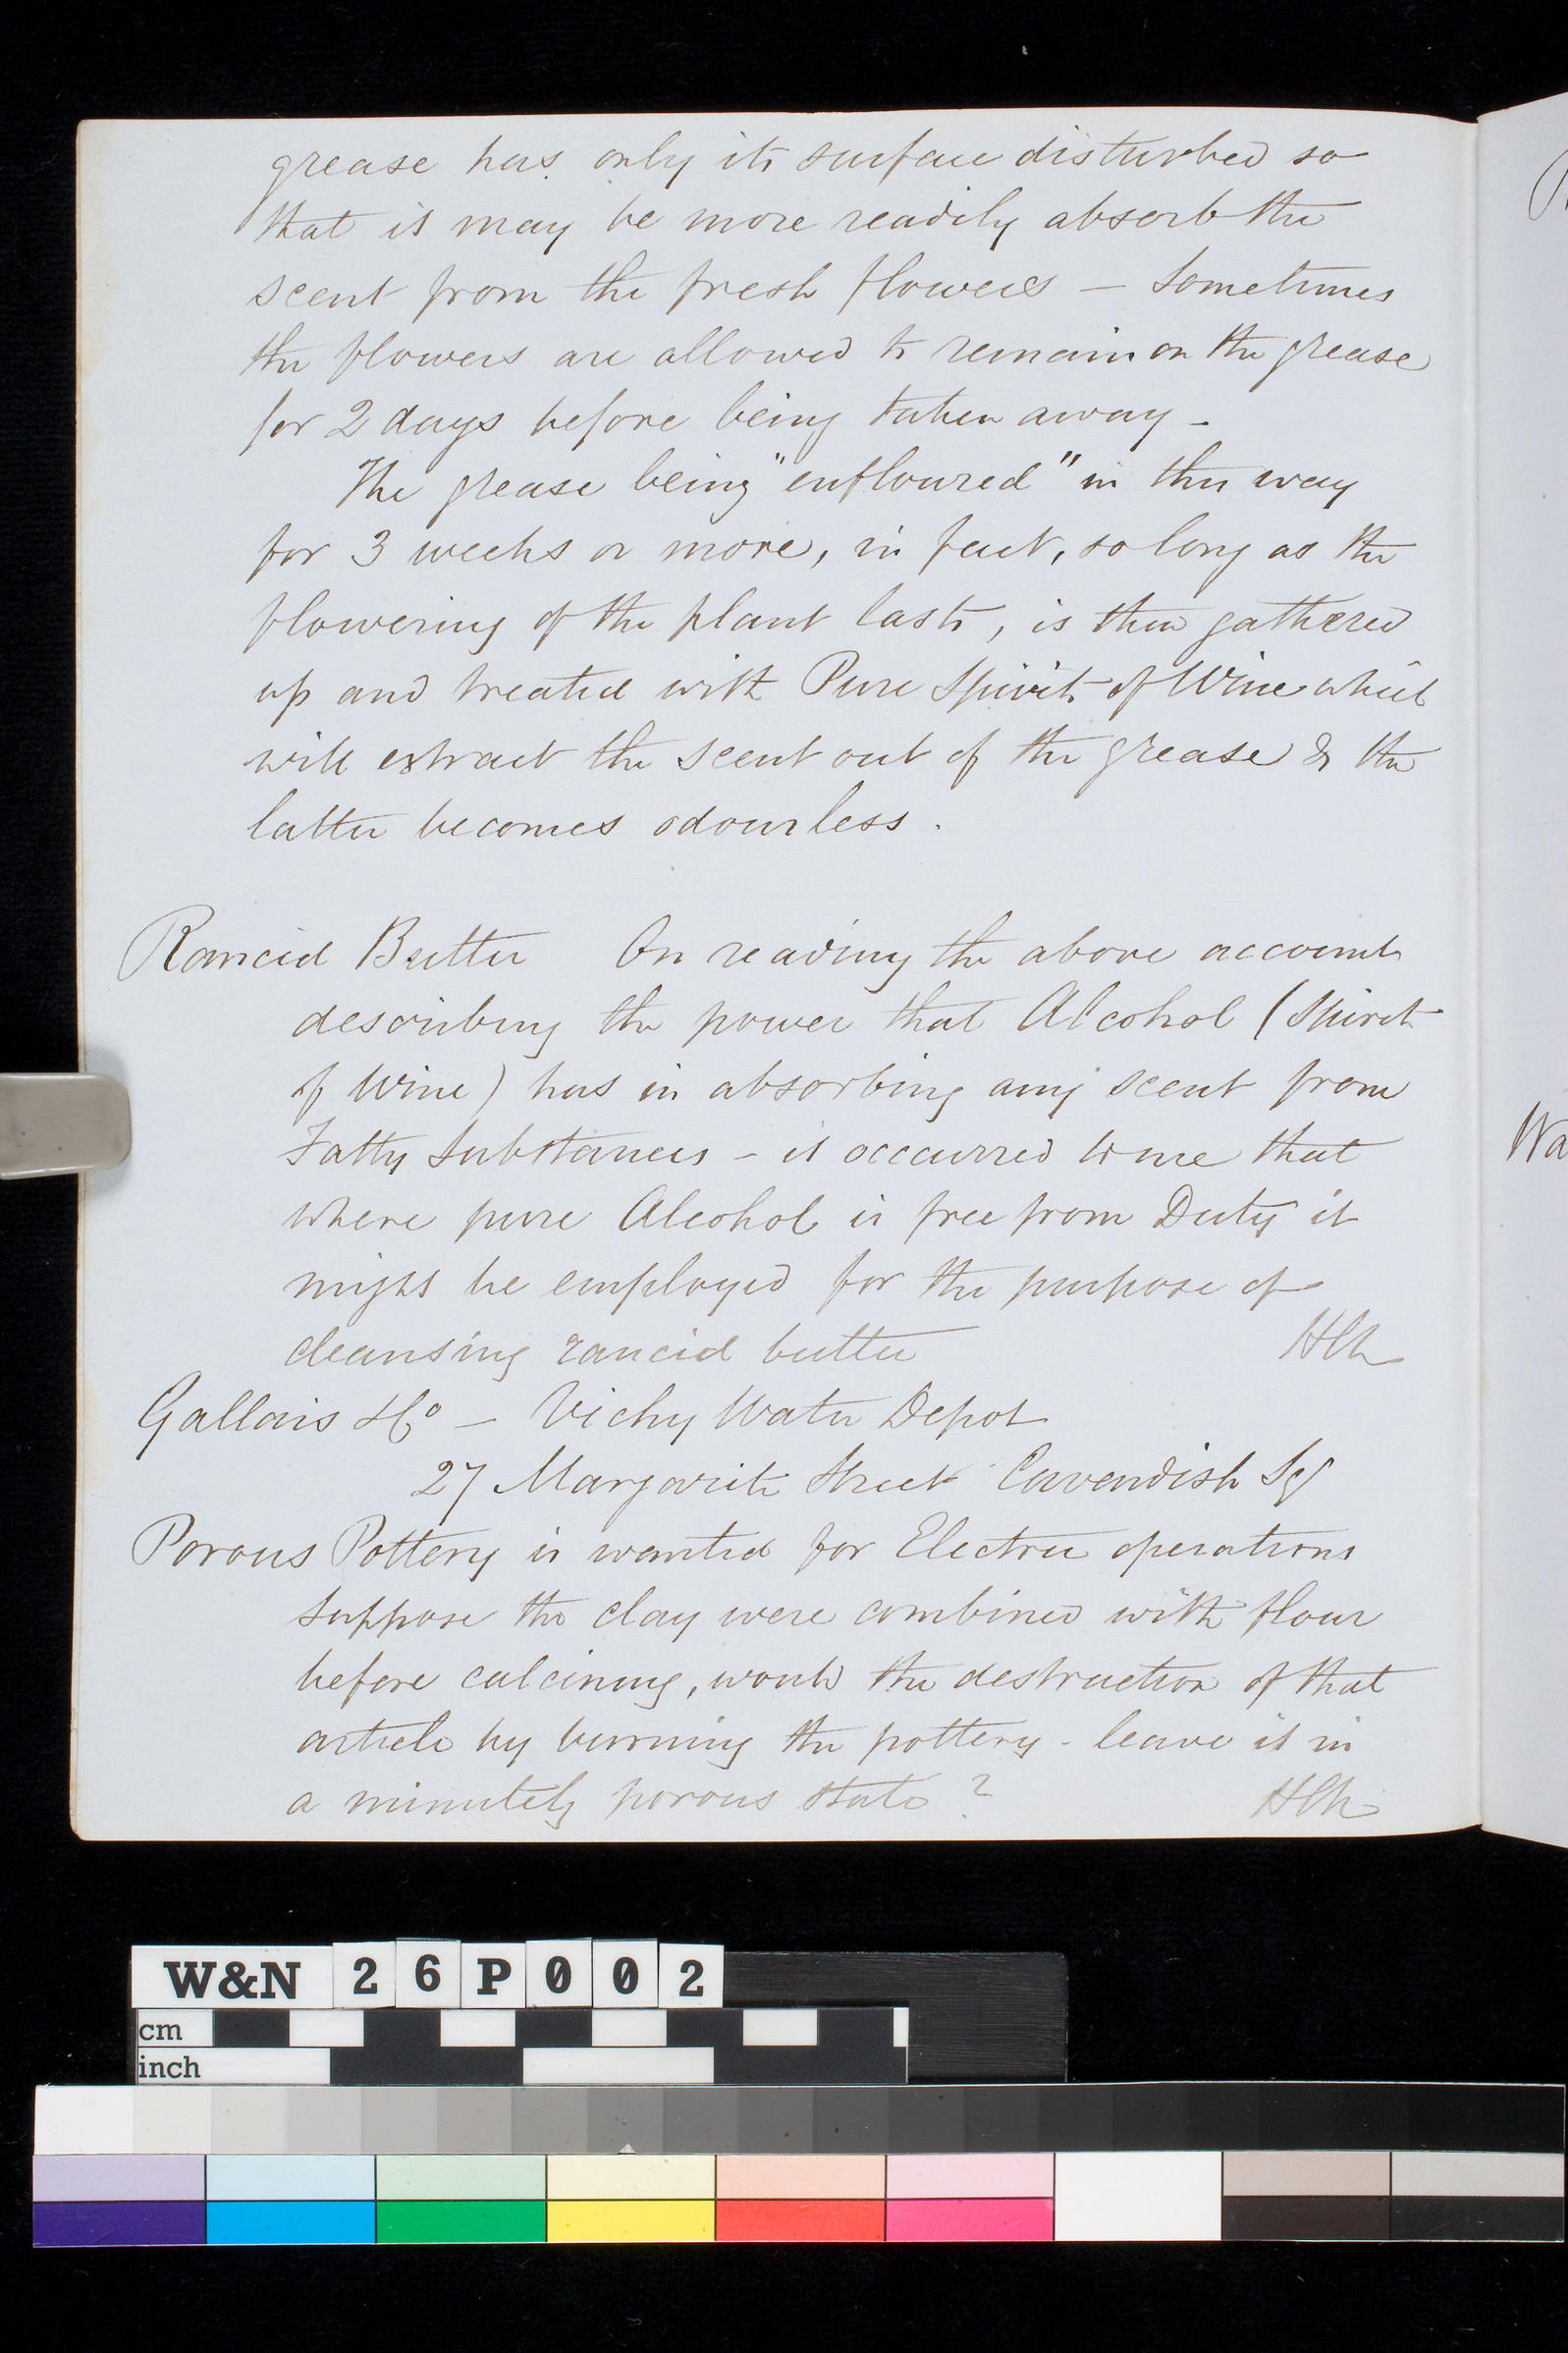 grease has only its surface disturbed so
that it may be more readily absorb the
scent from the fresh flowers — Sometimes
the flowers are allowed to remain on the grease
for 2 days before being taken away -
The grease being "enfloured" in this way
for 3 weeks or more, in fact, so long as the
flowering of the plant lasts, is then gathered
up and treated with Pure Spirits of Wine which
will extract the scent out of the grease & the
latter becomes odourless.
Rancid Butter On reading the above account
describing the power that Alcohol (Spirit
of Wine) has in absorbing any scent from
Fatty Substances - it occurred to me that
where pure Alcohol is free from Duty it
might be employed for the purpose of
cleansing rancid butter
Gallais & Co — Vichy Water Depot
27 Margarite Street Cavendish Sq
Porous Pottery is wanted for Electric operations
suppose the clay were combined with flour
before calcining, would the destruction of that
article by burning the pottery - leave it in
a minutely porous state ?
Wa
W&N 26P002
cm
inch